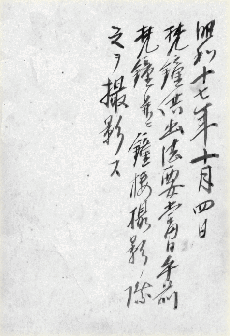 昭和十七年十月四日
梵鐘供出法要当日午前
梵鐘並ニ鐘楼撮影ノ際
之ヲ撮影ス